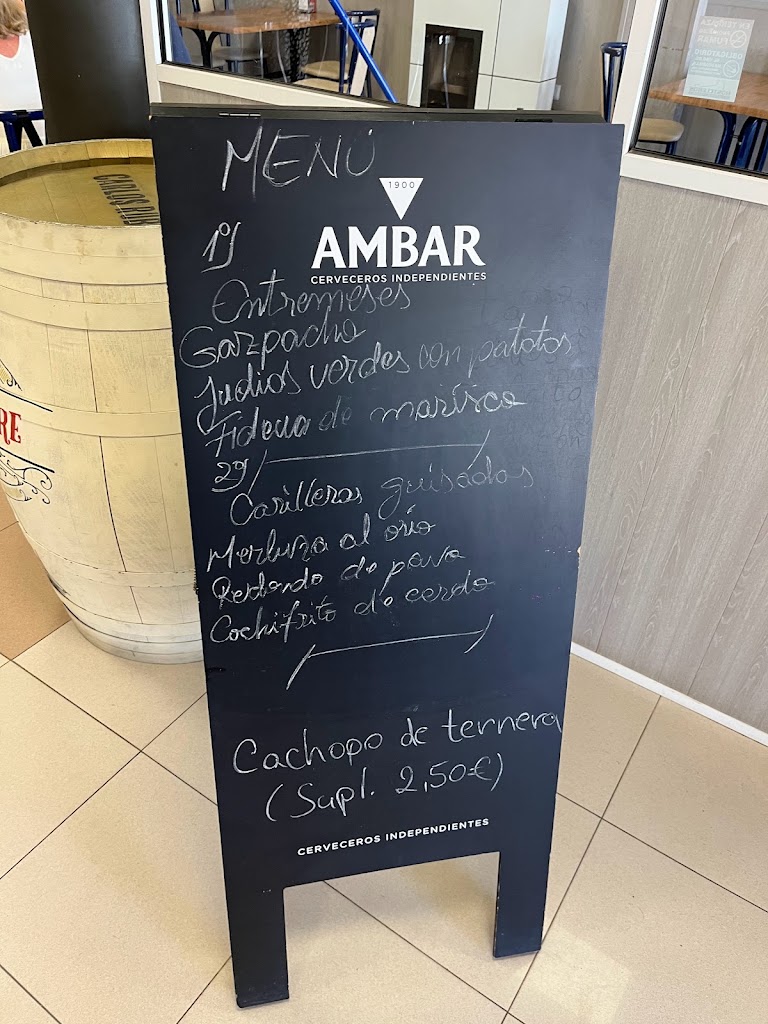 MENÚ
1900
AMBAR
CERVECEROS INDEPENDIENTES
1º/
Entremeses
Gazpacho
Judias verdes con patatas
Fideua de marisco
2º/
Carilleras guisadas
Merluza al orio
Redondo de pava
Cochifrito de cerdo
Cachopo de ternera
(Supl. 2,50€)
CERVECEROS INDEPENDIENTES
RE